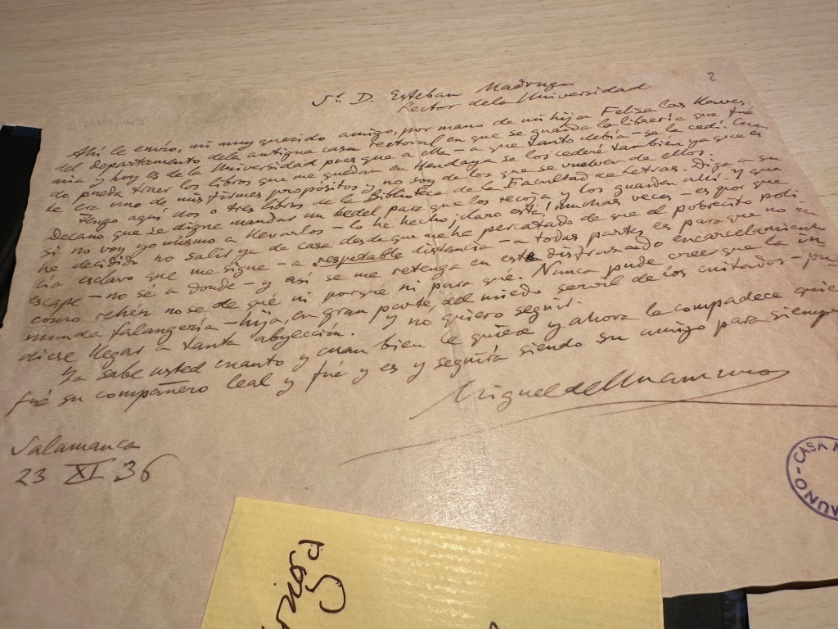 2
Sr. D. Esteban Madruga
Rector de la Universidad
Ahí le envío, mi muy querido amigo, por mano de mi hija Felisa las llaves
del departamento de la antigua casa rectoral en que se guarda la librería que fué
mía y hoy es de la Universidad pues que a ella - a que tanto debía - se la cedí. Cuan
do pueda traer los libros que me quedan en Hendaya se los cederé también ya que es
te era uno de mis firmes propósitos y no soy de los que se vuelven de ellos.
Tengo aquí dos o tres libros de la Biblioteca de la Facultad de Letras. Diga a su
Decano que se digne mandar un bedel para que los recoja y los guarden allí. Y que
si no voy yo mismo a llevarlos - lo he hecho ¡claro está! muchas veces - es por que
he decidido no salir ya de casa desde que me he percatado de que el pobrecito poli
cía esclavo que me sigue - a respetable distancia - a todas partes es para que no me
escape - no sé a donde - y así se me retenga en este disfrazado encarcelamiento
como rehén no sé de qué ni por qué ni para qué. Nunca pude creer que la in
munda falangería - hija, en gran parte, del miedo servil de los cuitados - pu
diese llegar a tanta abyección. Y no quiero seguir.
Ya sabe usted cuanto y cuan bien le quiere y ahora le compadece quien
fué su compañero leal y fué y es y seguirá siendo su amigo para siempre
Miguel de Unamuno
Salamanca
23 XI 36
CASA
UNO